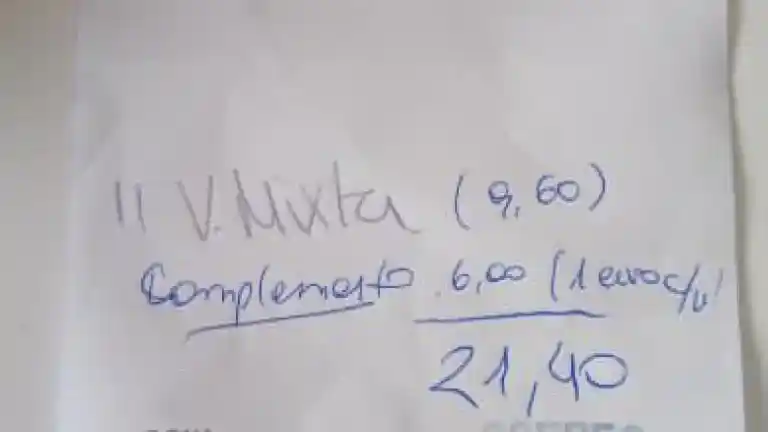 11 V. Mixta (9,60)
Complemento 6,00 (1 euro c/u)
21,40